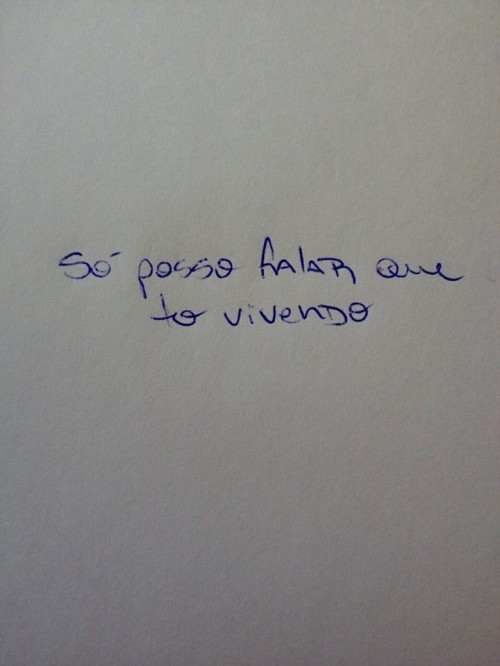 Só posso falar que
to vivendo